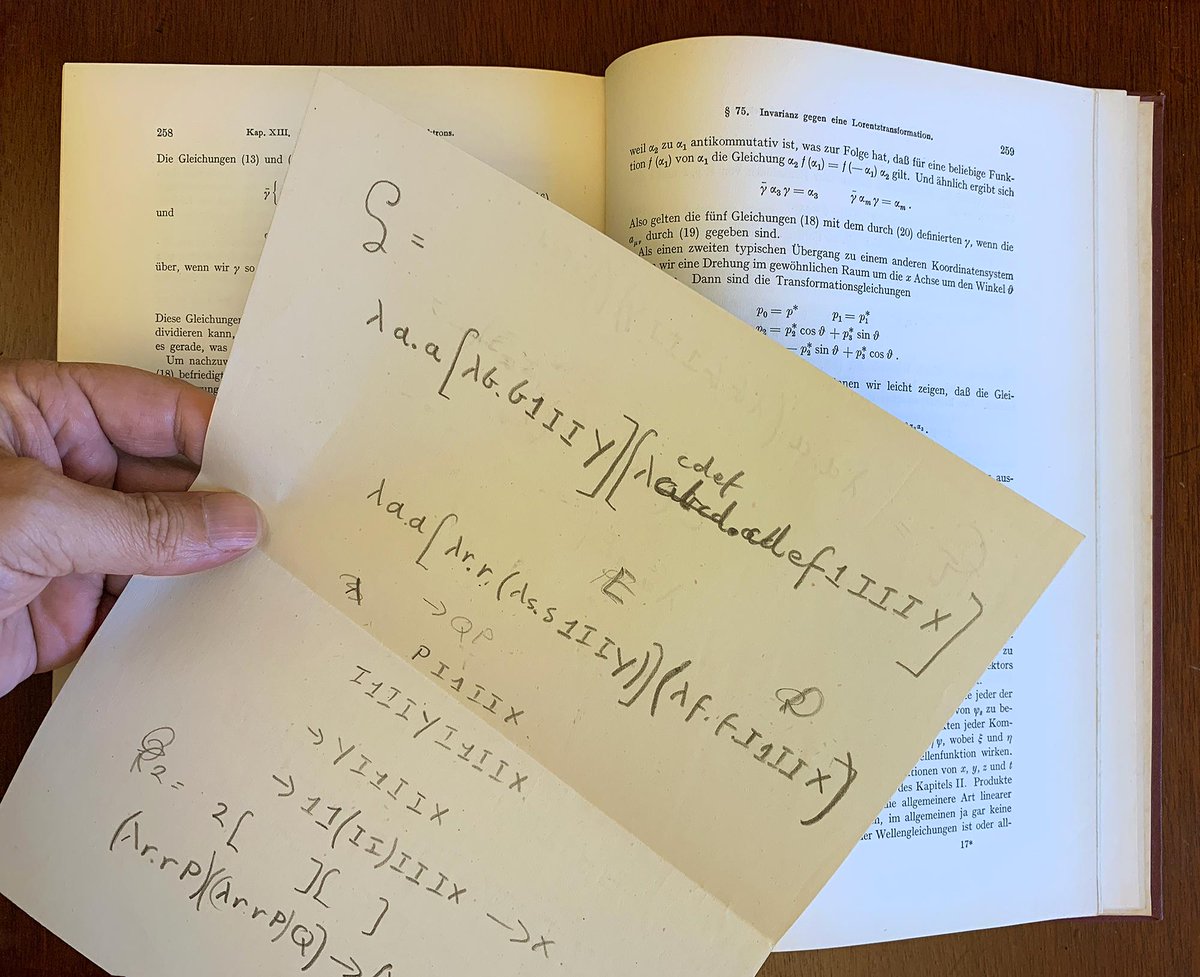 258 Kap. XIII. trons.
Die Gleichungen (13) und (
γ̃ {
und
über, wenn wir γ so
Diese Gleichungen
dividieren kann,
es gerade, was
Um nachzuw
(18) befriedigt
§ 75. Invarianz gegen eine Lorentztransformation. 259
weil α₂ zu α₁ antikommutativ ist, was zur Folge hat, daß für eine beliebige Funk-
tion f (α₁) von α₁ die Gleichung α₂ f (α₁) = f (— α₁) α₂ gilt. Und ähnlich ergibt sich
γ̃ α₃ γ = α₃ γ̃ αₘ γ = αₘ .
Also gelten die fünf Gleichungen (18) mit dem durch (20) definierten γ, wenn die
durch (19) gegeben sind.
Als einen zweiten typischen Übergang zu einem anderen Koordinatensystem
wir eine Drehung im gewöhnlichen Raum um die x Achse um den Winkel ϑ
Dann sind die Transformationsgleichungen
p₀ = p* p₁ = p₁*
p₂ = p₂* cos ϑ + p₃* sin ϑ
— p₂* sin ϑ + p₃* cos ϑ .
nen wir leicht zeigen, daß die Glei-
aus-
zu
ktors
e jeder der
von ψ, zu be-
kten jeder Kom-
ψ, wobei ξ und η
ellenfunktion wirken.
tionen von x, y, z und t
des Kapitels II. Produkte
ne allgemeinere Art linearer
n, im allgemeinen ja gar keine
er Wellengleichungen ist oder all-
17*
=
λa.a[λb.b1IIy][λcdef.1IIIx]
λa.a[λr.r.(λs.s1IIy)](λf.f.I1IIx)
→QP
PI1IIx
I1IIyI1IIx
→yI1IIx
→11(II)IIIx → x
2= 2[ ][ ]
(λr.rP)((λr.rP)Q) →